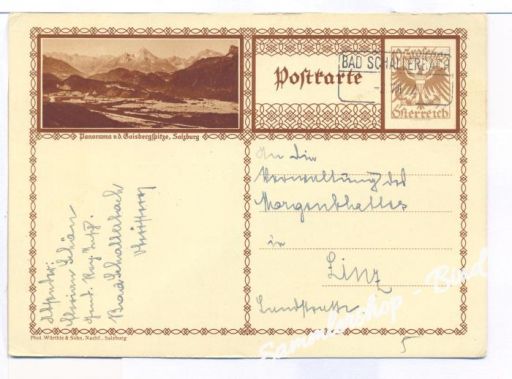 Panorama v.d. Gaisbergspitze, Salzburg
Postkarte
BAD SCHALLERBACH
Groschen
Österreich
An die
Verwaltung des
Morgenblattes
in
Linz
Landstraße
5
Absender:
Bad Schallerbach
Phot. Würthle & Sohn, Nachf., Salzburg
Sammlershop - Bind